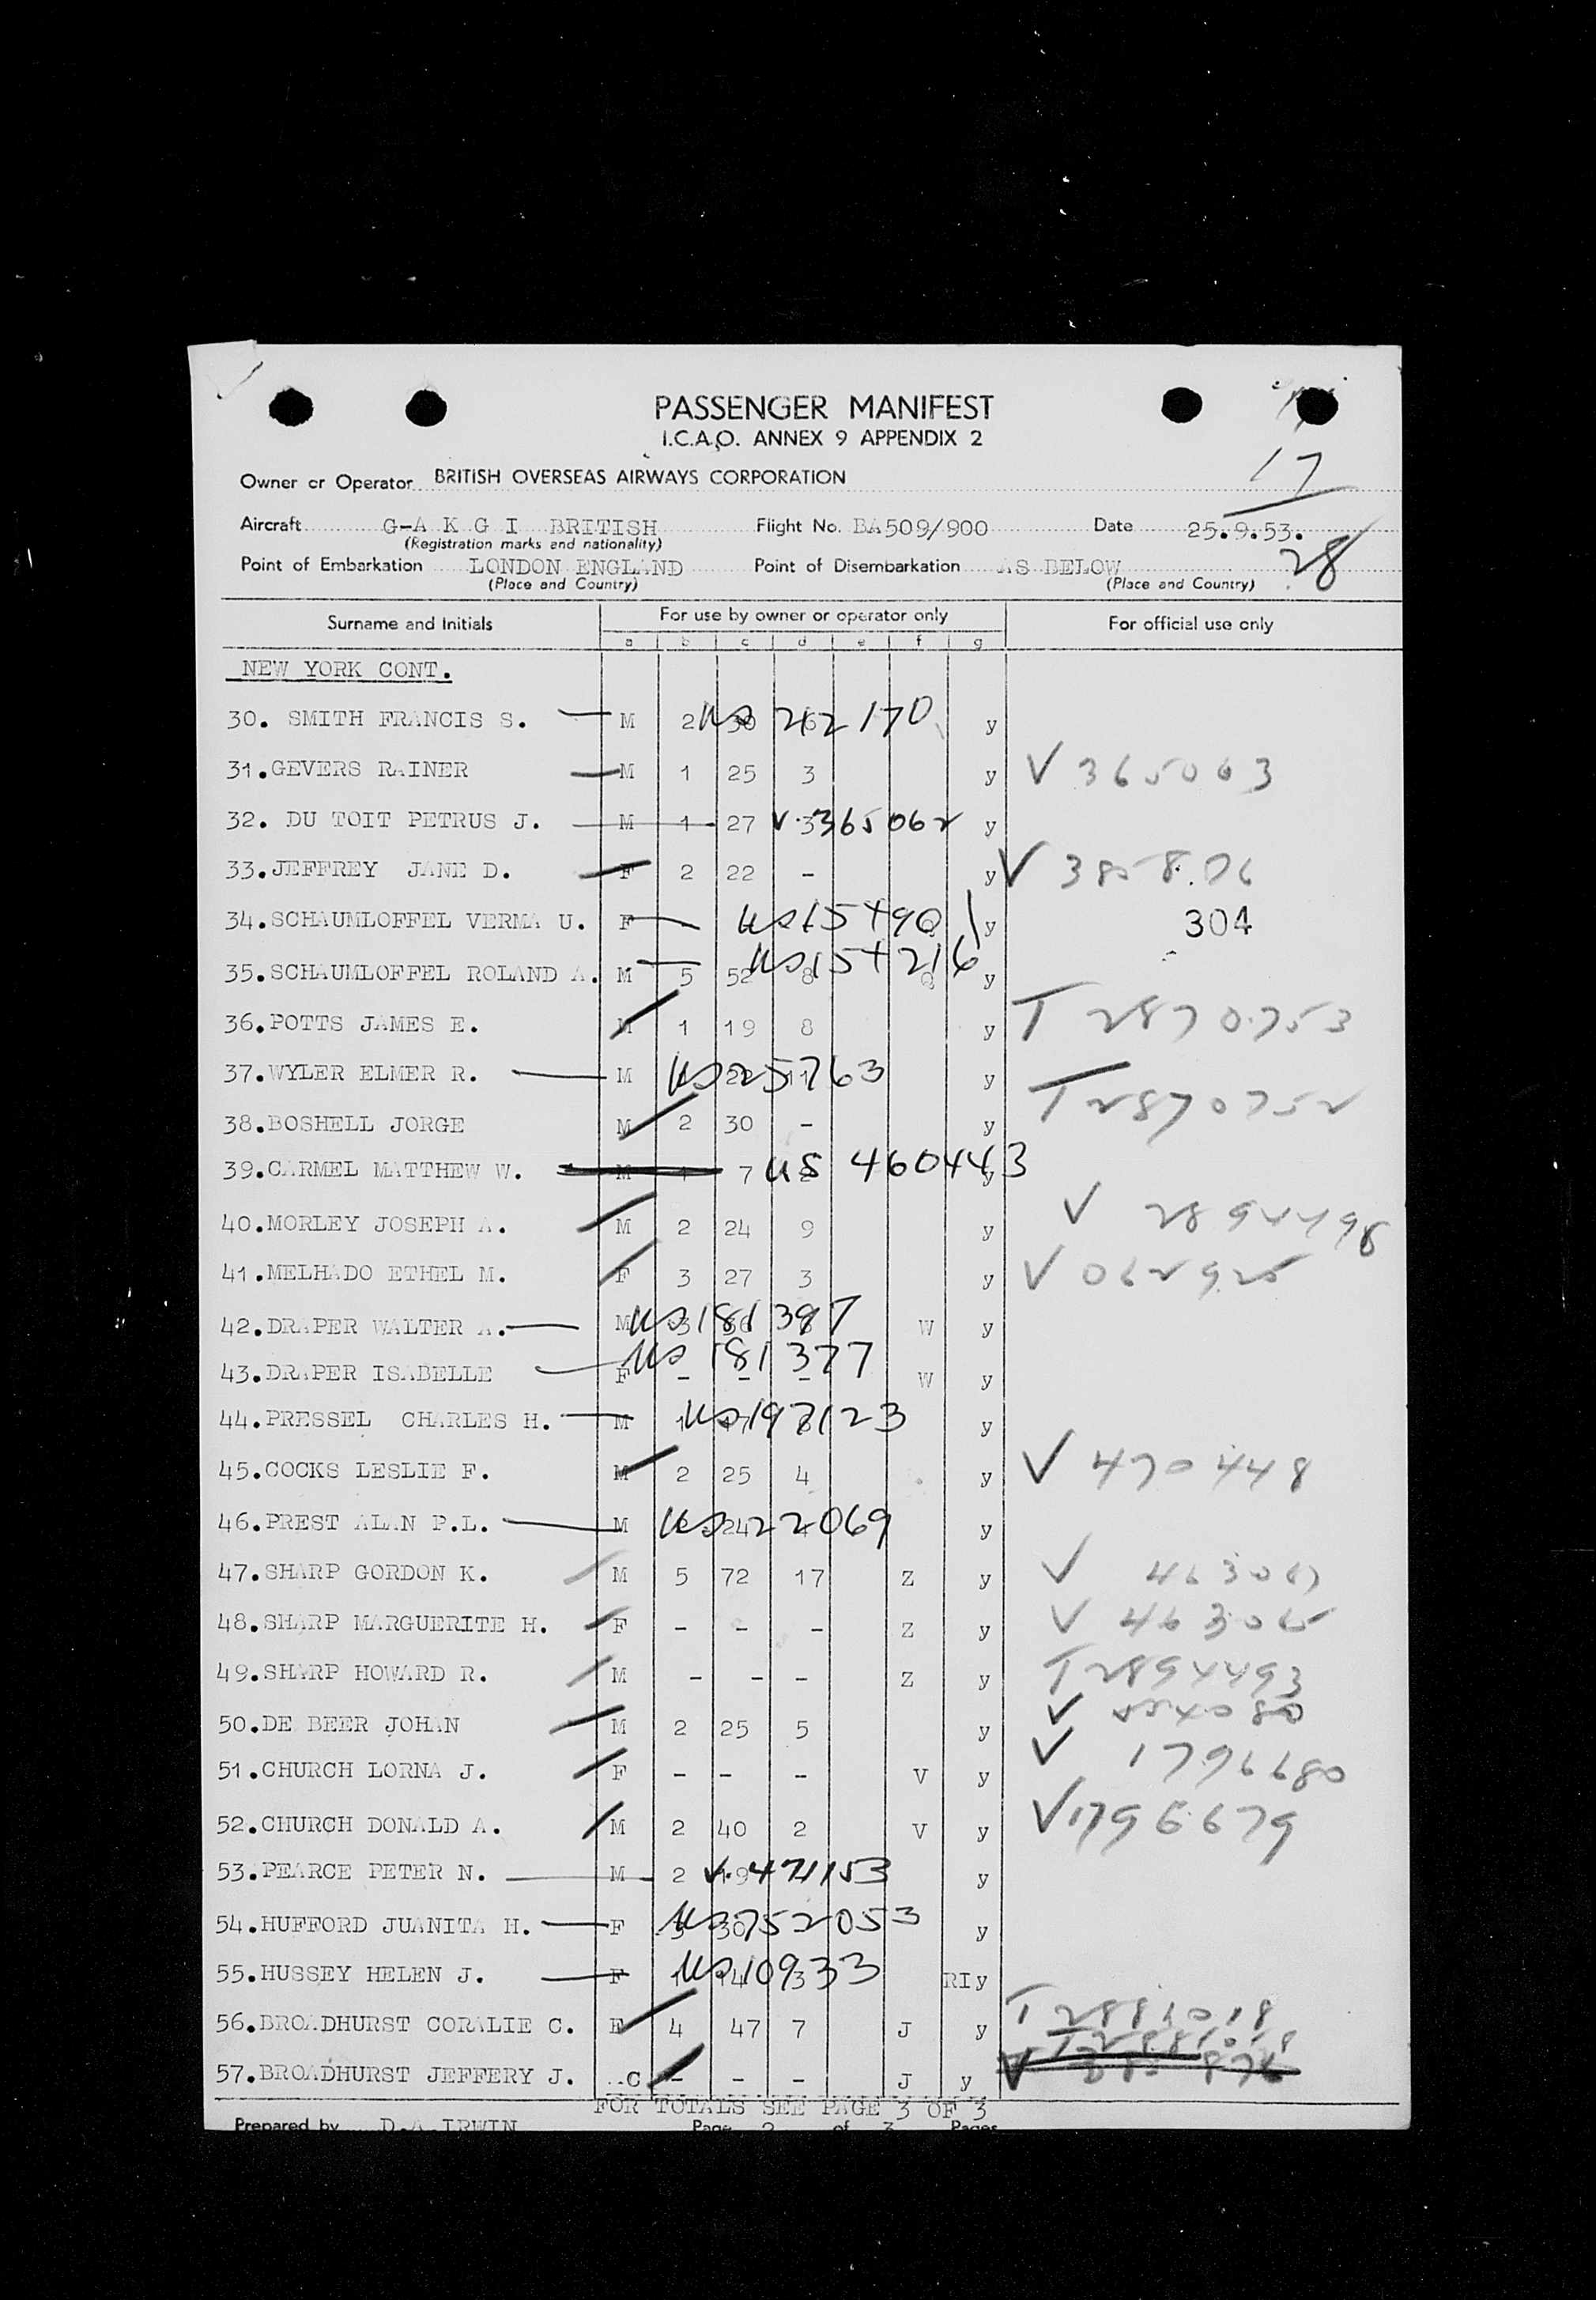 PASSENGER MANIFEST
I.C.A.O. ANNEX 9 APPENDIX 2
17
Owner or Operator BRITISH OVERSEAS AIRWAYS CORPORATION
Aircraft G-A K G I BRITISH Flight No. BA509/900 Date 25.9.53.
(Registration marks and nationality)
28
Point of Embarkation LONDON ENGLAND Point of Disembarkation AS BELOW
(Place and Country) (Place and Country)
Surname and Initials For use by owner or operator only For official use only
a b c d e f g
NEW YORK CONT.
30. SMITH FRANCIS S. M 2 30 6 US 242170 y
31.GEVERS RAINER M 1 25 3 y V 365063
32. DU TOIT PETRUS J. M 1 27 3 V.365062 y
33.JEFFREY JANE D. F 2 22 - y V
34.SCHAUMLOFFEL VERMA U. F Q y 304
35.SCHAUMLOFFEL ROLAND A. M 5 52 8 Q y
36.POTTS JAMES E. M 1 19 8 y T 2870753
37.WYLER ELMER R. M US 25763 y
38.BOSHELL JORGE M 2 30 - y T 2870752
39.CARMEL MATTHEW W. M 1 7 US 460443 y
40.MORLEY JOSEPH A. M 2 24 9 y V 2894498
41.MELHADO ETHEL M. F 3 27 3 y V 062925
42.DRAPER WALTER A. M US 181387 W y
43.DRAPER ISABELLE F - - - US 181377 W y
44.PRESSEL CHARLES H. M US 197123 y
45.COCKS LESLIE F. M 2 25 4 y V 470448
46.PREST ALAN P.L. M 24 US 22069 y
47.SHARP GORDON K. M 5 72 17 Z y V
48.SHARP MARGUERITE H. F - - - Z y V
49.SHARP HOWARD R. M - - - Z y T 2894493
50.DE BEER JOHAN M 2 25 5 y V
51.CHURCH LORNA J. F - - - V y V 1796680
52.CHURCH DONALD A. M 2 40 2 V y V 1796679
53.PEARCE PETER N. M 2 19 V. 471153 y
54.HUFFORD JUANITA H. F 3 30 US 752053 y
55.HUSSEY HELEN J. F 1 14 3 US 10933 RI y
56.BROADHURST CORALIE C. F 4 47 7 J y T 2881018
57.BROADHURST JEFFERY J. C - - - J y
FOR TOTALS SEE PAGE 3 OF 3
Prepared by D.A. IRWIN Page 2 of 3 Pages